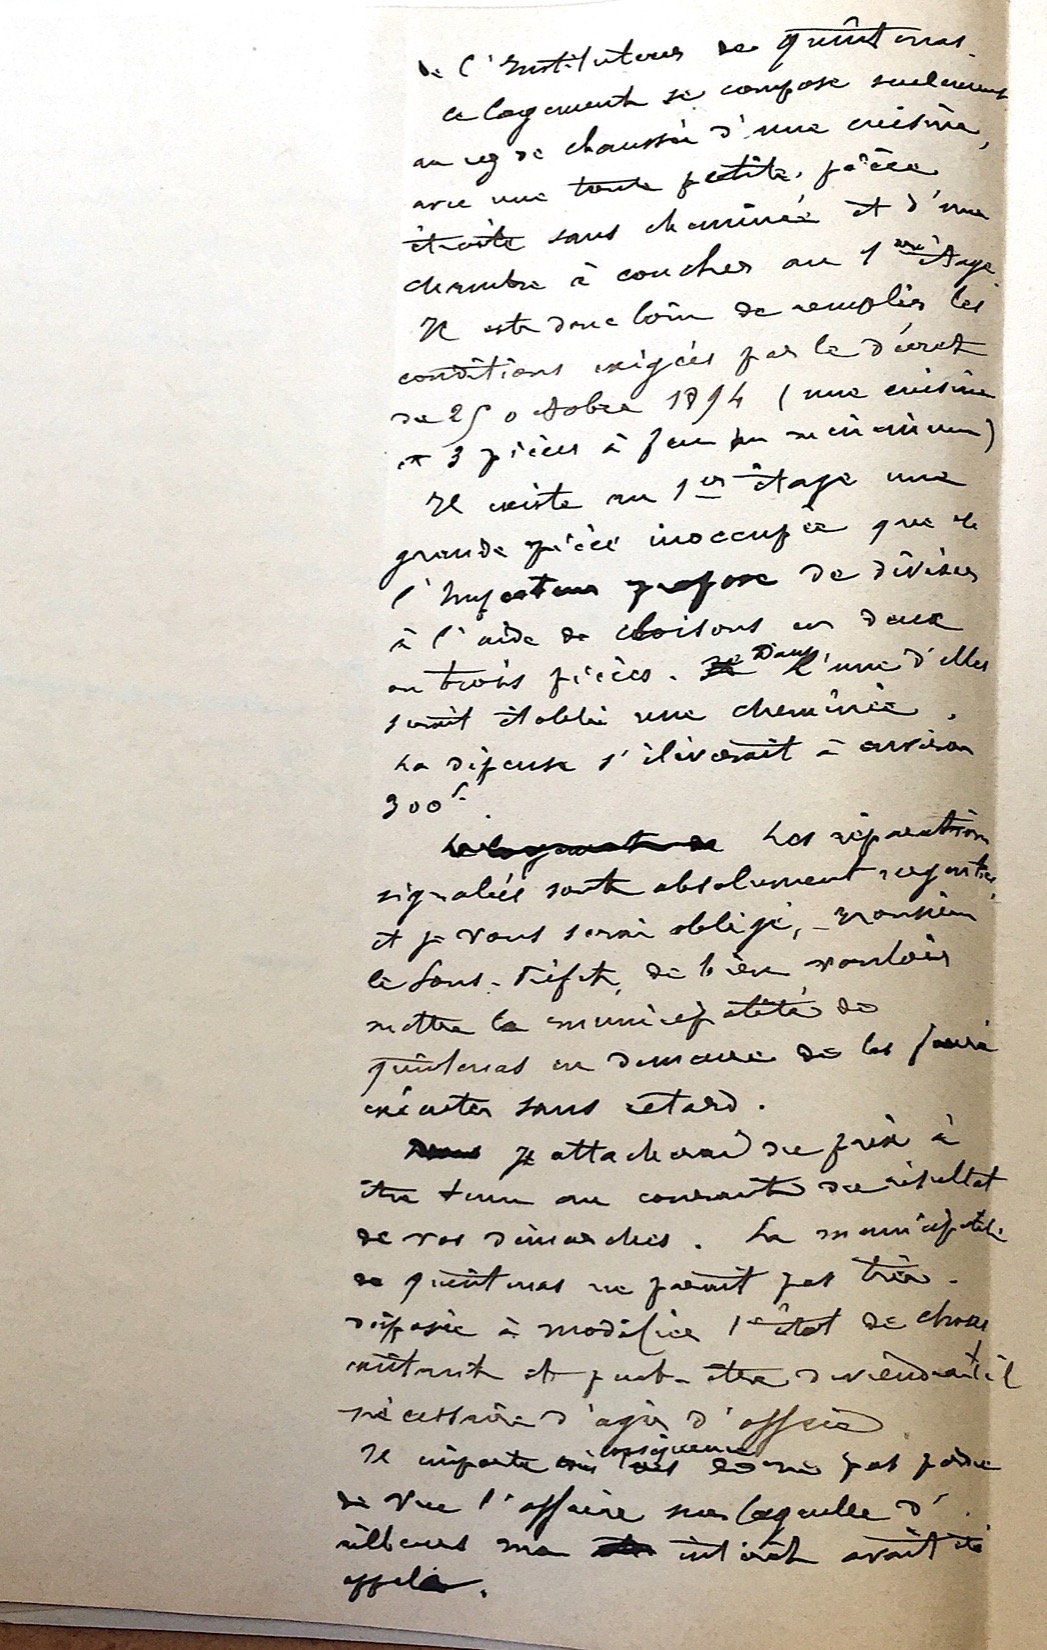 de l'Instituteur de Quintenas.
Ce logement se compose seulement
au rez de chaussée d'une cuisine,
avec une toute petite pièce
étroite sans cheminée et d'une
chambre à coucher au 1er étage.
Il est donc loin de remplir les
conditions exigées par le décret
de 25 octobre 1894 (une cuisine
et 3 pièces à feu au minimum)
Il existe au 1er étage une
grande pièce inoccupée que
l'Inspecteur propose de diviser
à l'aide de cloisons en deux
ou trois pièces. Dans l'une d'elles
serait établie une cheminée.
La dépense s'élèverait à environ
300f.
Le logement de Les réparations
signalées sont absolument urgentes
et je vous serai obligé, Monsieur
le Sous-Préfet, de bien vouloir
mettre la municipalité de
Quintenas en demeure de les faire
exécuter sans retard.
J'attacherai du prix à
être tenu au courant du résultat
de vos démarches. La municipalité
de Quintenas ne paraît pas très
disposée à modifier l'état de choses
existant et peut-être deviendrait-il
nécessaire d'agir d'office
Il importe en conséquence de ne pas perdre
de vue l'affaire sur laquelle d'
ailleurs mon avait été
appelée.